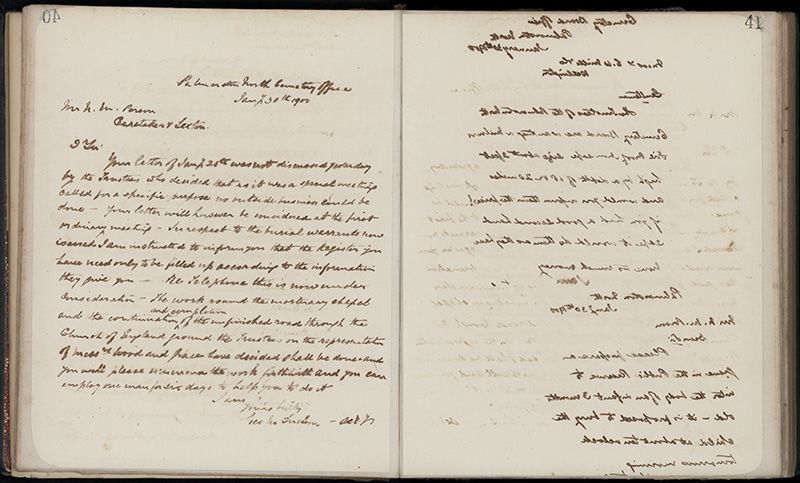 40
Palmerston North Cemetery Office
Jany 30th 1900
Mr
Caretaker & Sexton
D Sir
Your letter of Jany 20th was not discussed yesterday
by the Trustees who decided that as it was a special meeting
called for a specific purpose no outside business could be
done — Your letter will however be considered at the first
ordinary meeting — In respect to the burial warrants now
issued I am instructed to inform you that the Register you
have need only to be filled up according to the information
they give you — Re Telephone this is now under
Consideration — The work round the mortuary chapel
and completion
and the continuation of the unfinished road through the
Church of England ground the Trustees on the representation
of Messrs Wood and have decided shall be done and
you will please commence the work forthwith and you can
employ one man for six days to help you to do it
I am
Yours
41
Cemetery Board Office
Palmerston North
January 30th 1900
Wellington
Gentlemen
Instructions of the Palmerston North
Cemetery Board are wanting
safe size about 2 feet
high by a depth of 18 or 20 inches
and would you inform them the price
if you had a good second hand
one it would do them as they
have not much money
Palmerston North
Jany 30th 1900
Mr
Dear Sir
Please prepare a
grave in the Public Reserve
for the body of an infant
old — it is proposed to bury the
child at about ten o'clock
tomorrow morning